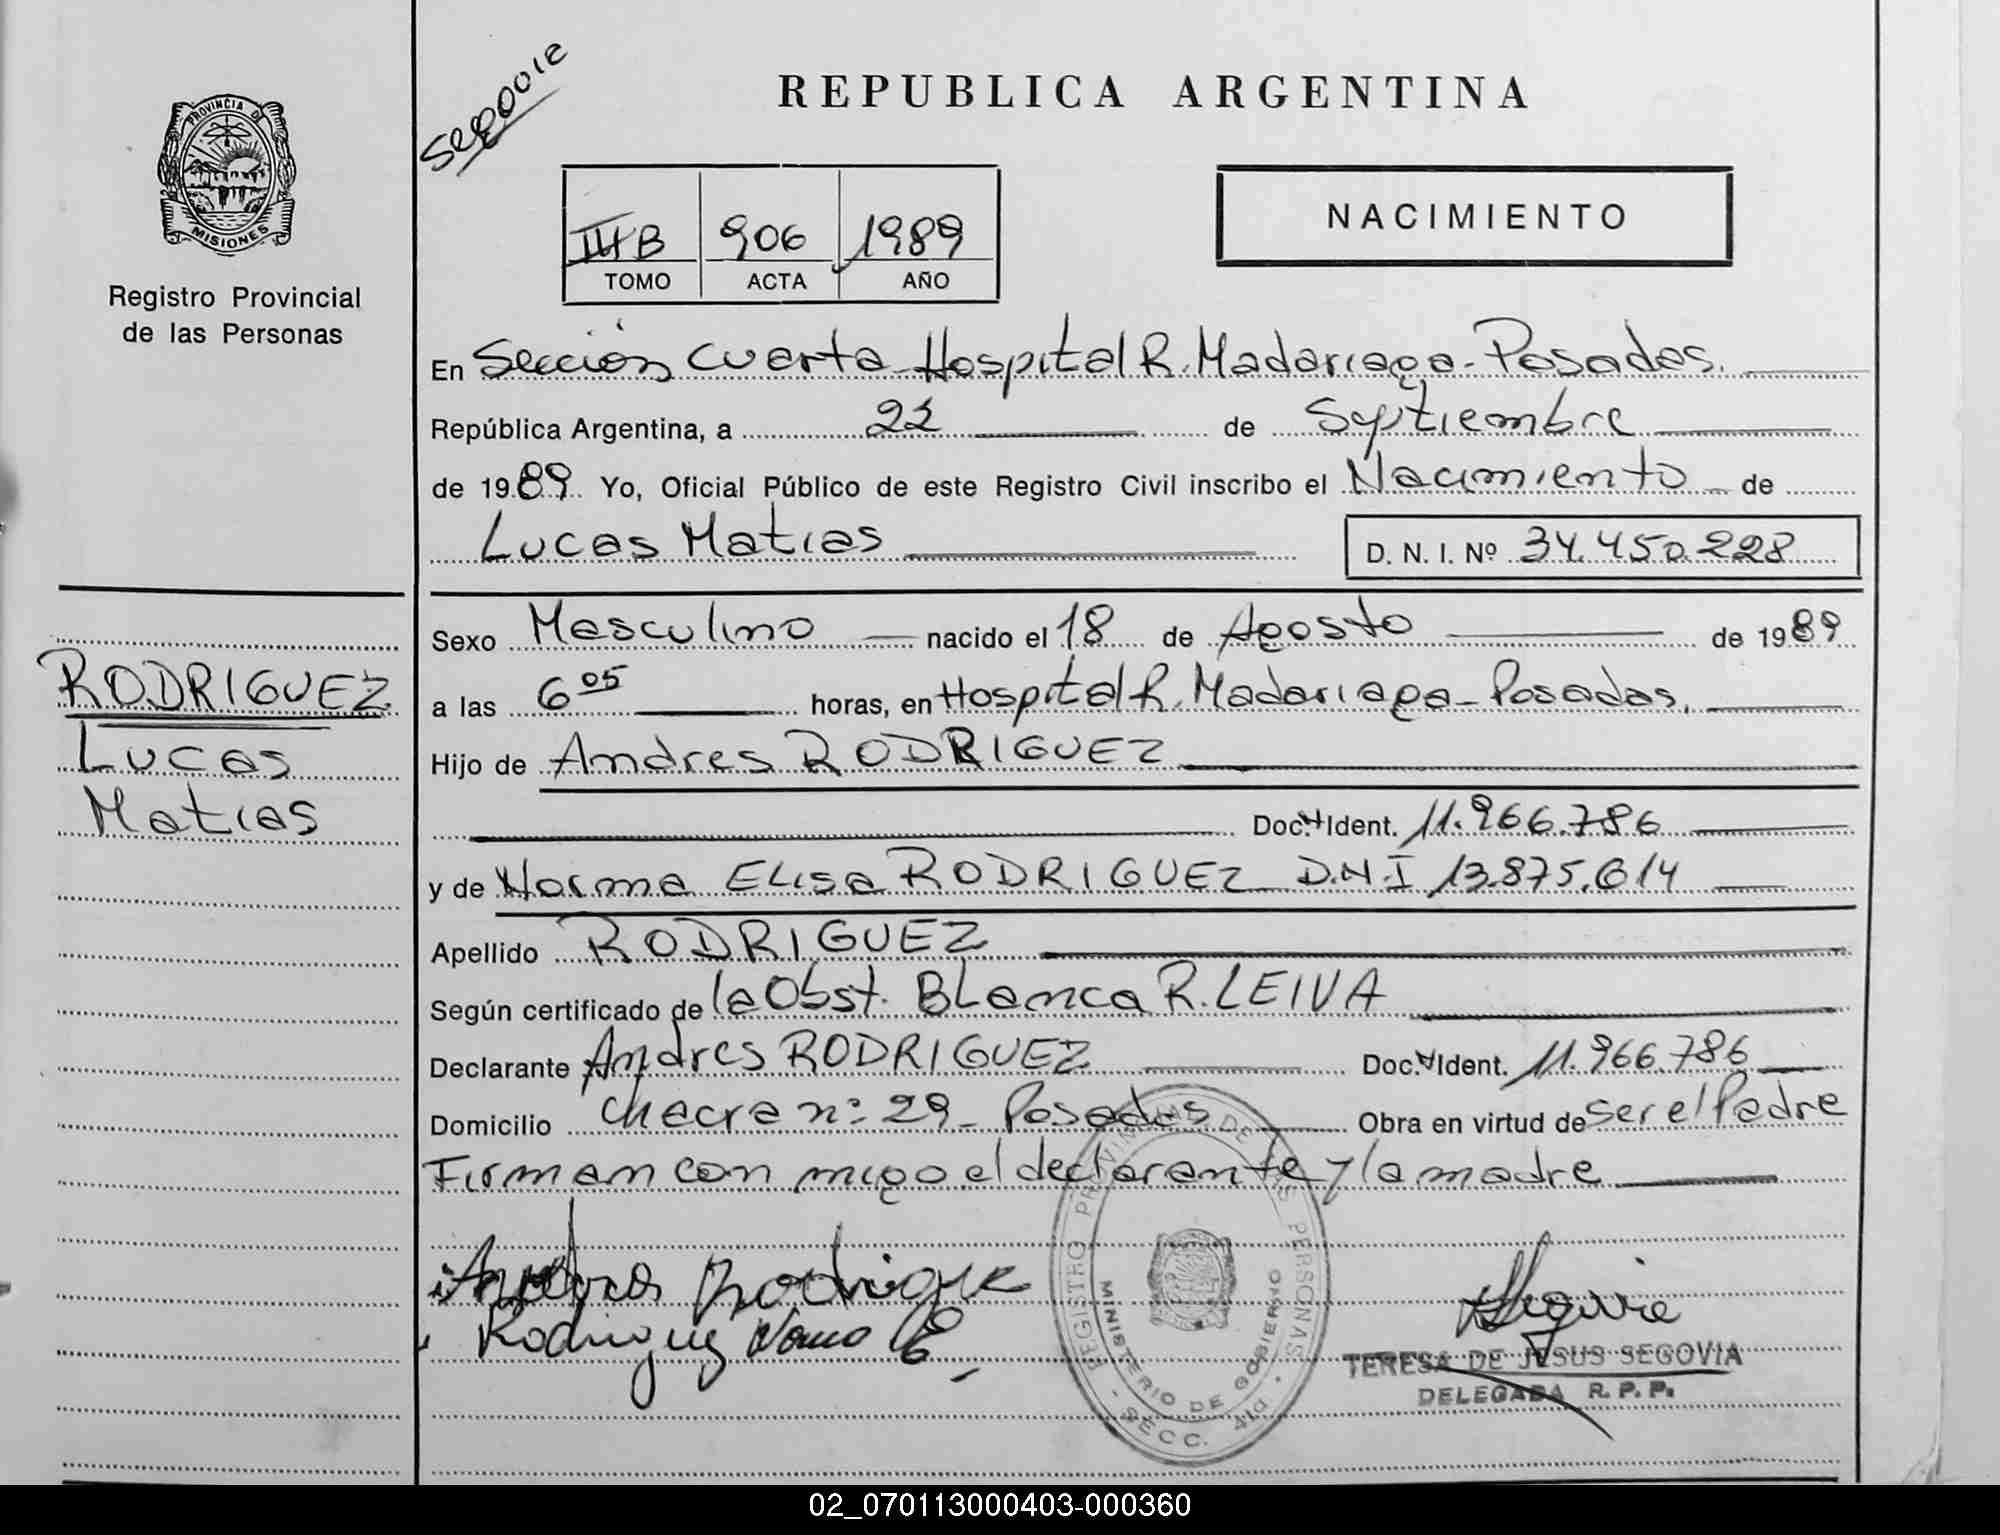 PROVINCIA DE
MISIONES
Registro Provincial
de las Personas
RODRIGUEZ
Lucas
Matias
REPUBLICA ARGENTINA
NACIMIENTO
III B 906 1989
TOMO ACTA AÑO
En Sección Cuarta Hospital R. Madariaga - Posadas.
República Argentina, a 22 de Septiembre
de 1989 Yo, Oficial Público de este Registro Civil inscribo el Nacimiento de
Lucas Matias D. N. I. Nº 34.450.228
Sexo Masculino nacido el 18 de Agosto de 1989
a las 6 05 horas, en Hospital R. Madariaga - Posadas.
Hijo de Andres RODRIGUEZ
Doc. Ident. 11.966.786
y de Norma Elisa RODRIGUEZ D.N.I 13.875.614
Apellido RODRIGUEZ
Según certificado de la Obst. Blanca R. LEIVA
Declarante Andres RODRIGUEZ Doc. Ident. 11.966.786
Domicilio Chacra nº 29 - Posadas Obra en virtud de ser el Padre
Firman con migo el declarante y la madre
Andres Rodrigue
Rodriguez Norma E
REGISTRO PROVINCIAL DE LAS PERSONAS
MINISTERIO DE GOBIERNO
SECC. 4ta
TERESA DE JESUS SEGOVIA
DELEGADA R. P. P.
02_070113000403-000360